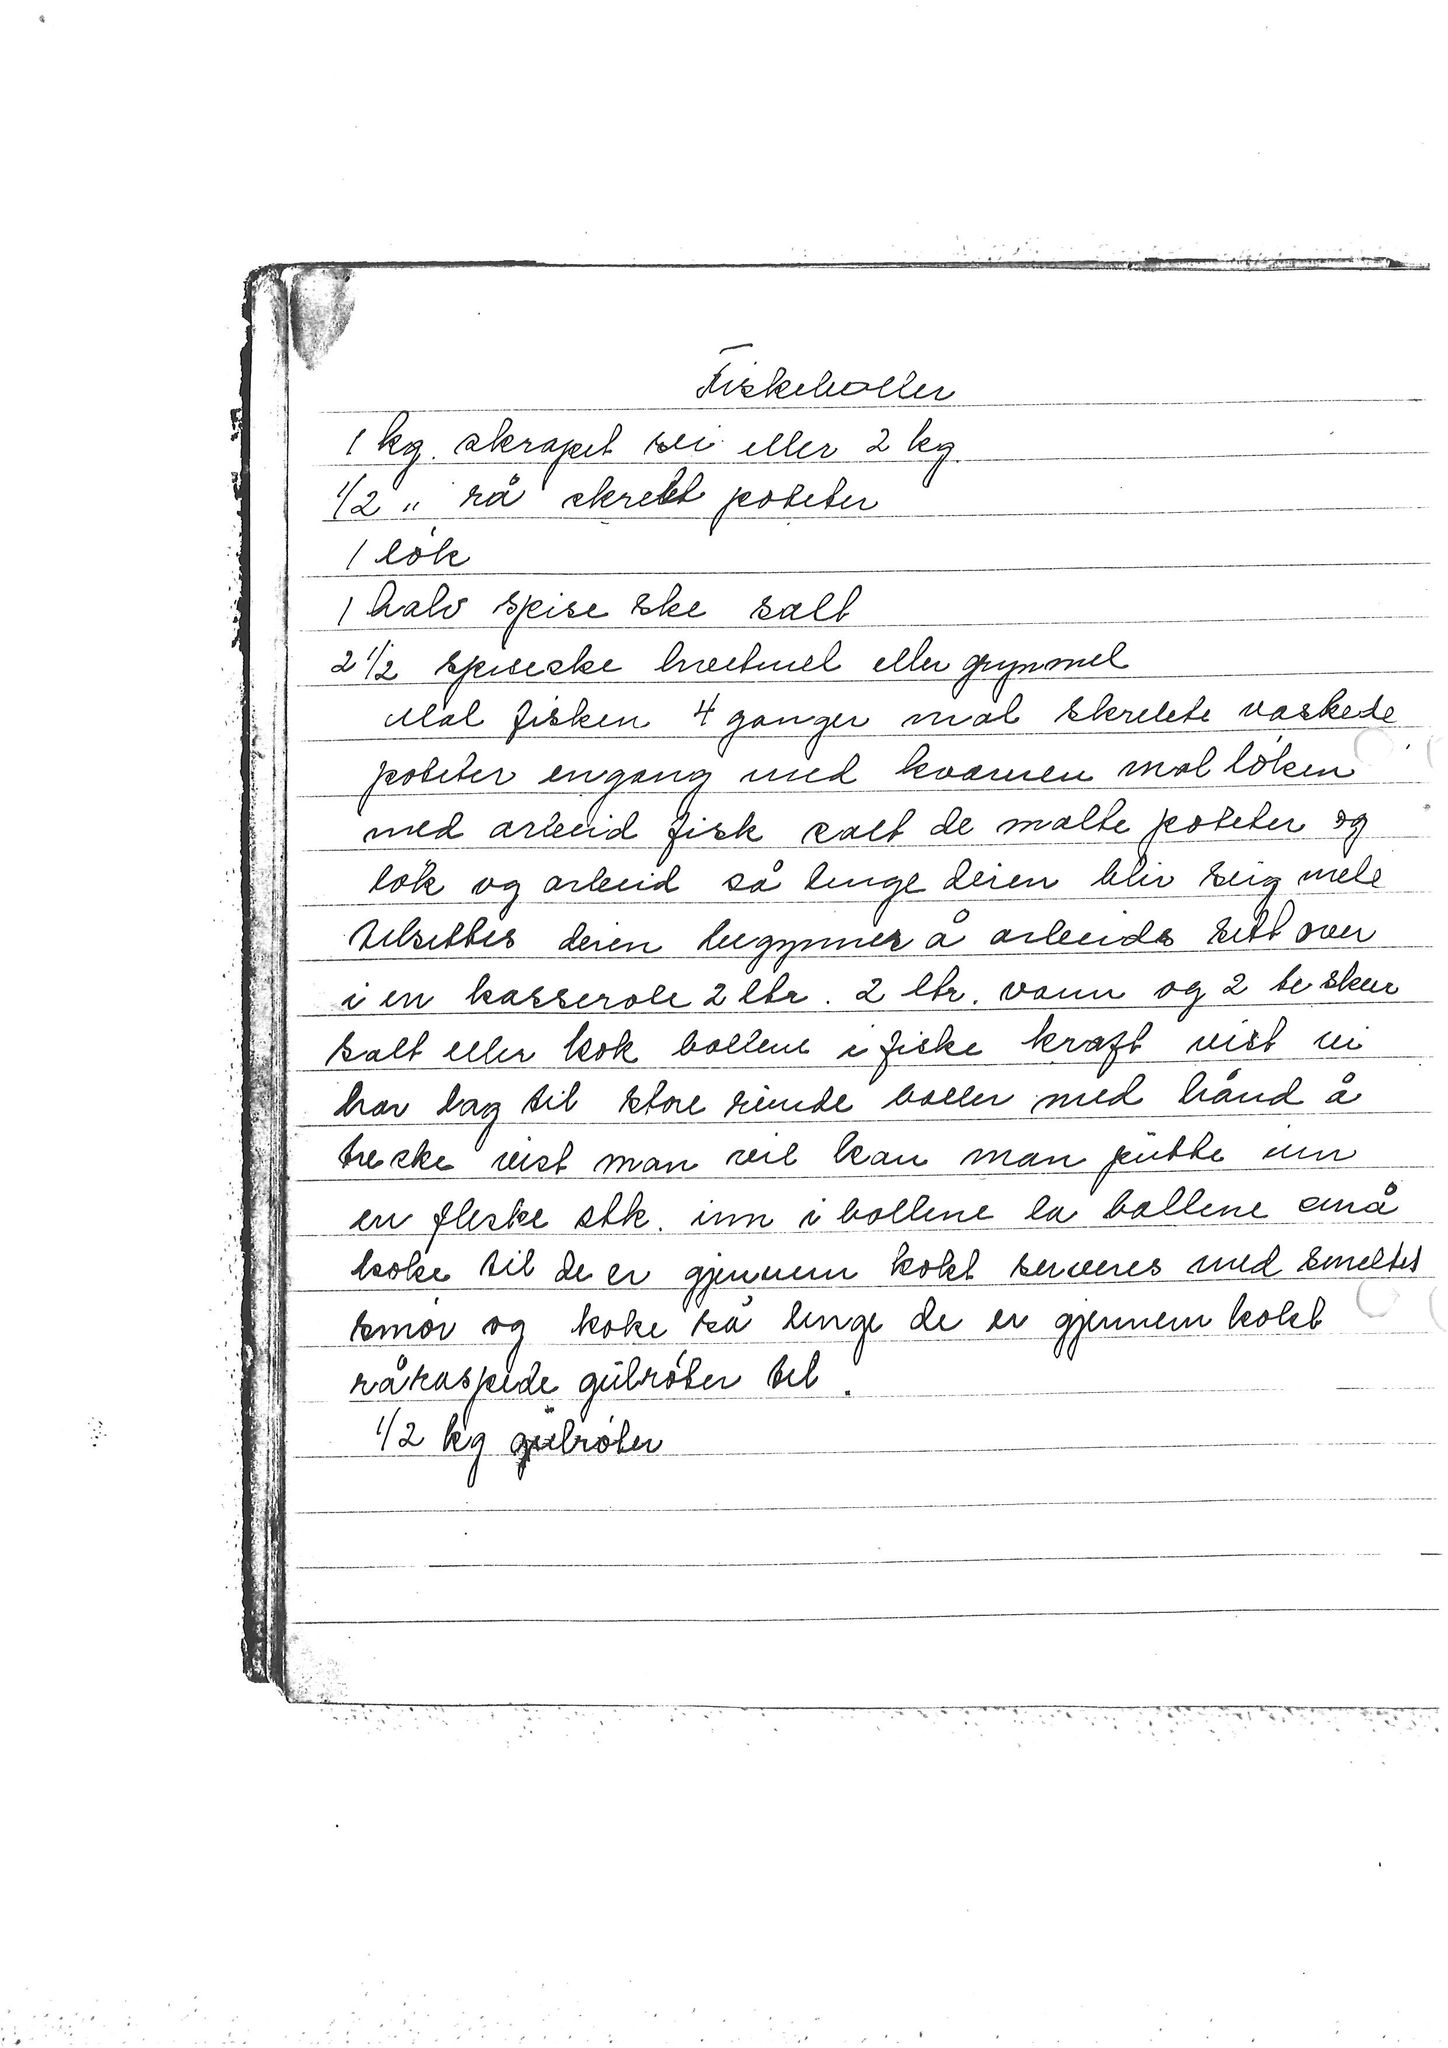 Fiskeboller
1 kg. skrapet sei eller 2 kg.
1/2 " rå skrelt poteter
1 lök
1 halv spise ske salt
2 1/2 spiseske hvetmel eller grynmel
Mal fisken 4 ganger mal skrelete vaskede
poteter engang med kvarnen mal löken
med arbeid fisk salt de malte poteter og
lök og arbeid så lenge deien blir seig mele
tilsettes deien begynner å arbeids sett over
i en kasserole 2 ltr. 2 ltr. vann og 2 te skeer
salt eller kok bollene i fiske kraft vist vi
har lag til store runde boller med hånd å
treske vist man vil kan man putte inn
en fleske stk. inn i bollene la bollene små
koke til de er gjennem kokt serveres med smeltet
smör og koke så lenge de er gjennem kokt
råraspede gülröter tel.
1/2 kg gülröter